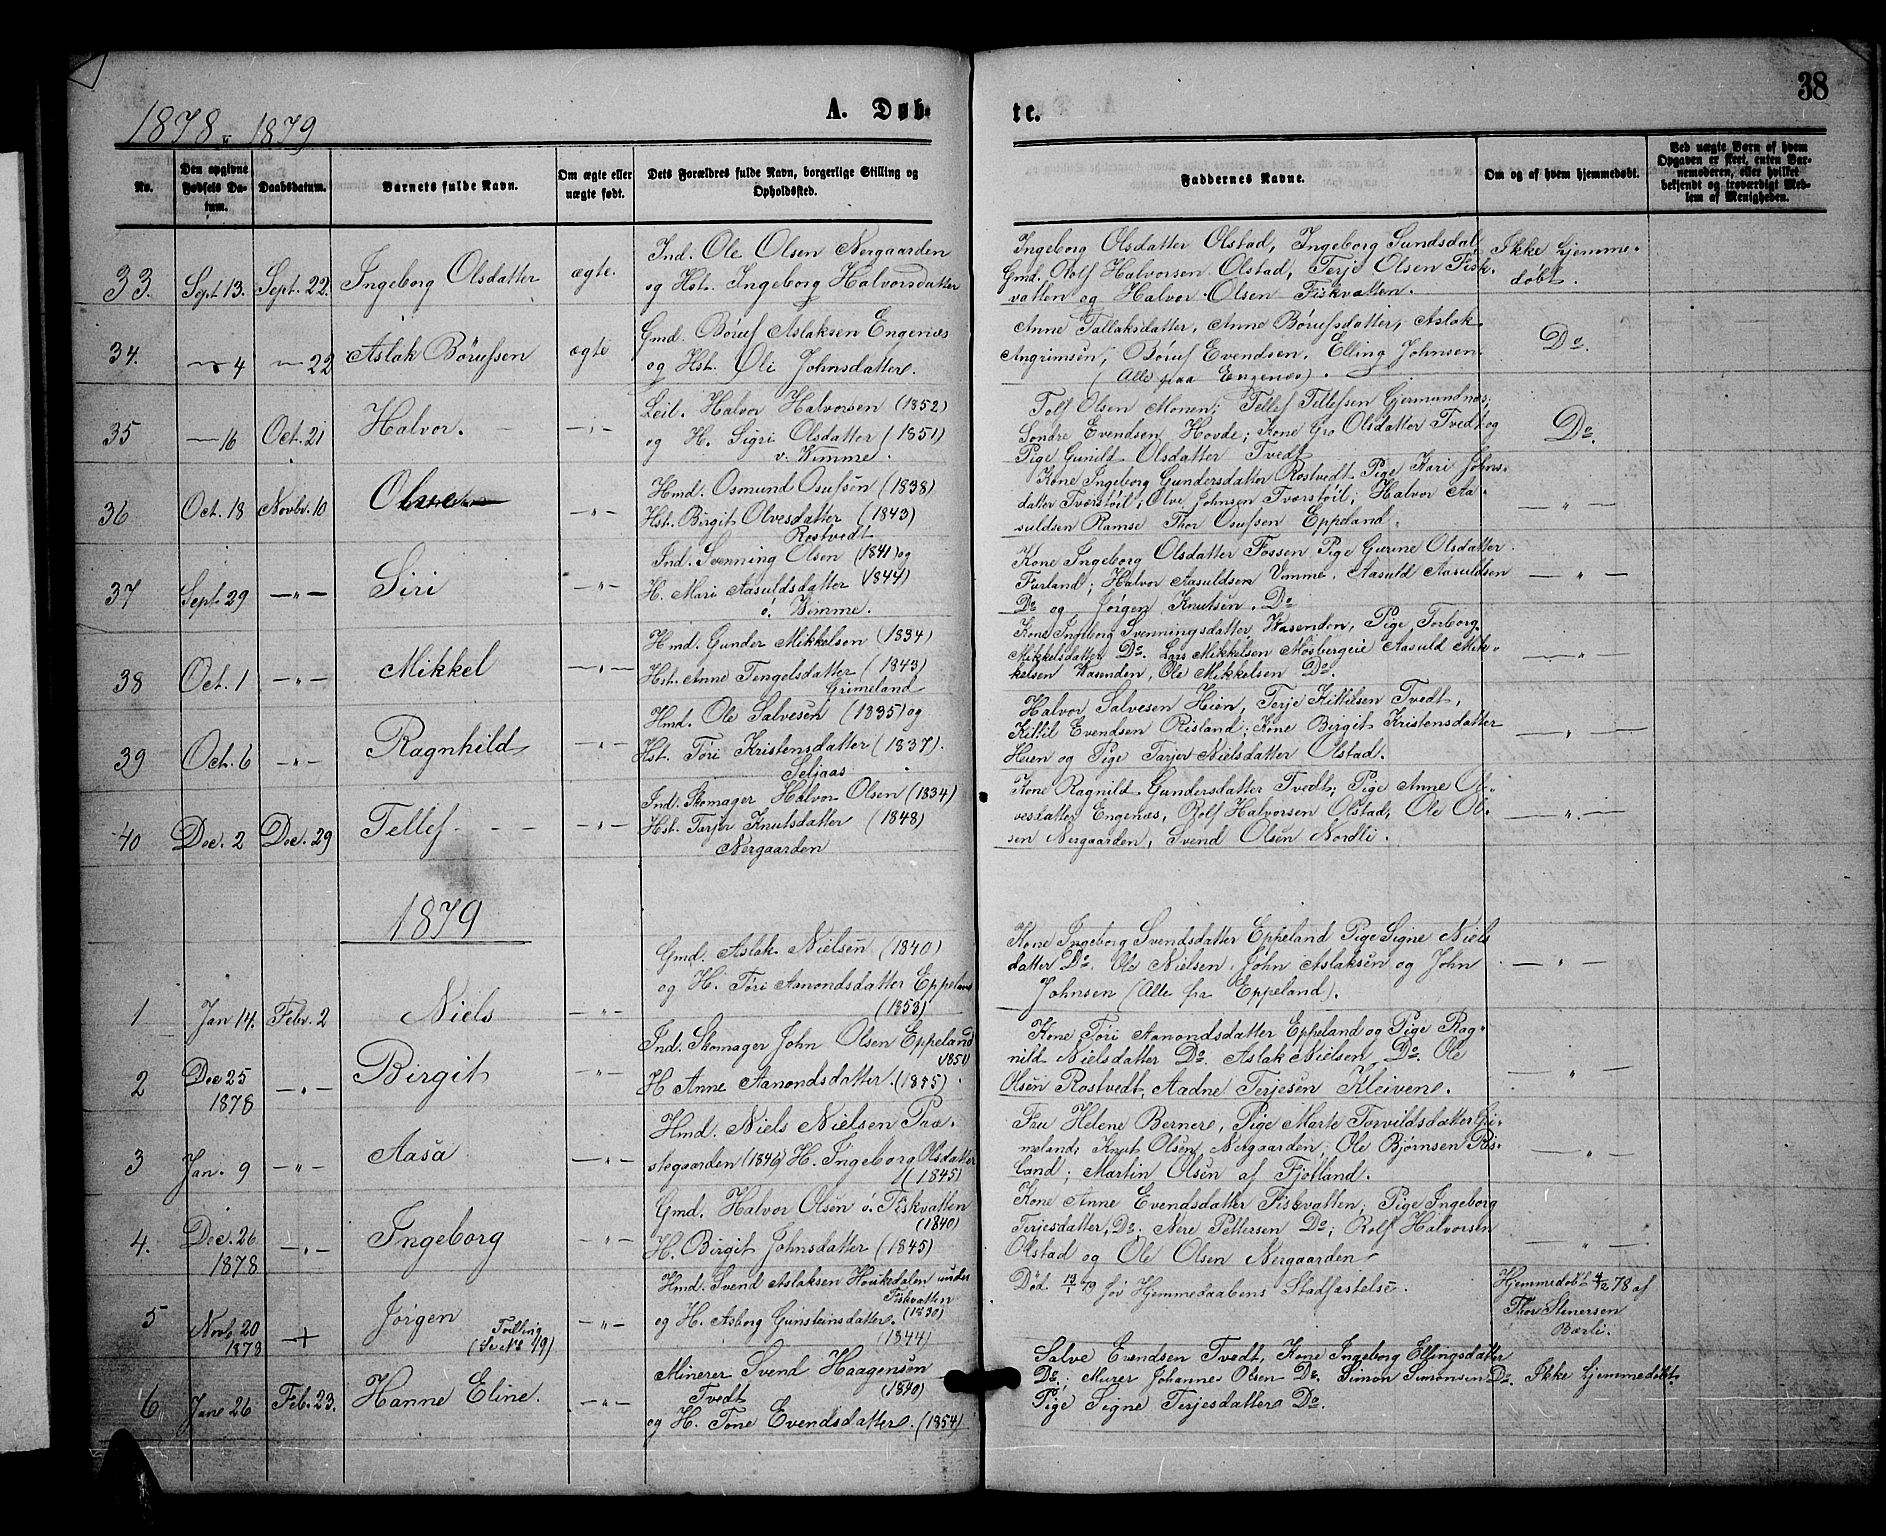 1878 & 1879
A. Døb-
te.
38
No.
Den opgivne Fødsels Datum.
Daabsdatum.
Barnets fulde Navn.
Om ægte eller uægte født.
Dets Forældres fulde Navn, borgerlige Stilling og Opholdssted.
Faddernes Navne.
Om og af hvem hjemmedøbt.
Ved uægte Børn af hvem Opgaven er skeet, enten Barnemoderen, eller hvilket bekjendt og troværdigt Medlem af Menigheden.
33. Sept 13. Sept. 22. Ingeborg Olsdatter ægte.
Ind. Ole Olsen Nergaarden
og Hst. Ingeborg Halvorsdatter
Ingeborg Olsdatter Olstad, Ingeborg Sundsdal,
Gmd. Rolf Halvorsen Olstad, Terje Olsen Fisk-
vatten og Halvor Olsen Fiskvatten.
Ikke hjemme-
døbt.
34. — 4 — 22 Aslak Børufsen ægte
Gmd. Børuf Aslaksen Engenæs
og Hst. Oli Johnsdatter.
Anne Tallaksdatter, Anne Børufsdatter, Aslak
Angrimsen, Børuf Evendsen, Elling Johnsen
(Alle paa Engenæs).
Do.
35 — 16 Oct. 21 Halvor. — " —
Leil. Halvor Halvorsen (1852)
og H. Sigri Olsdatter (1851)
v. Vimme.
Tolf Olsen Monen; Tellef Tellefsen Gjermundnæs;
Søndre Evendsen Hovde; Kone Gro Olsdatter Tvedt og
Pige Gunild Olsdatter Tvedt
Do.
36 Oct. 18 Novbr. 10 Olve — " —
Hmd. Osmund Osufsen (1838)
Hst. Birgit Olvesdatter (1843)
Rostvedt
Kone Ingeborg Gundersdatter Rostvedt Pige Kari Johns-
datter Tværstøil; Olve Johnsen Tværstøil; Halvor Aa-
suldsen Ramse Thor Osufsen Eppeland.
— " —
37 Sept. 29 — " — Siri — " —
Ind. Svenning Olsen (1841) og
H. Mari Aasuldsdatter (1844)
ö. Vimme.
Kone Ingeborg Olsdatter Fossen Pige Gurine Olsdatter
Furland; Halvor Aasuldsen Vimme. Aasuld Aasuldsen
Do og Jørgen Knutsen. Do
— " —
38 Oct. 1 — " — Mikkel — " —
Hmd. Gunder Mikkelsen (1834)
Hst. Anne Tengelsdatter (1843)
Grimeland
Kone Ingeborg Svenningsdatter Wasenden, Pige Torborg
Mikkelsdatter Do. Lars Mikkelsen Mosbergeie Aasuld Mik-
kelsen Wasenden, Ole Mikkelsen Do.
— " —
39 Oct. 6 — " — Ragnhild — " —
Hmd. Ole Salvesen (1835) og
Hst. Tøri Kristensdatter (1837).
Seljaas
Halvor Salvesen Heien, Terje Kittilsen Tvedt,
Kittil Evendsen Risland; Kone Birgit Kristensdatter
Heien og Pige Tarjer Nielsdatter Olstad.
— " —
40 Dec. 2 Dec. 29 Tellef — " —
Ind. Skomager Halvor Olsen (1834)
Hst. Tarjer Knutsdatter (1848)
Nergaarden
Kone Ragnild Gundersdatter Tvedt; Pige Anne Ol-
vesdatter Engenæs, Rolf Halvorsen Olstad, Ole Ol-
sen Nergaarden, Svend Olsen Nordli.
— " —
1879
1 Jan 14. Febr. 2 Niels — " —
Gmd. Aslak Nielsen (1840)
og H. Tøri Aamondsdatter Eppeland
(1853)
Kone Ingeborg Svendsdatter Eppeland Pige Signe Niels
datter Do. Ole Nielsen, John Aslaksen og John
Johnsen (Alle fra Eppeland).
— " —
2 Dec 25 1878 — " — Birgit — " —
Ind. Skomager John Olsen Eppeland
1850
H Anne Aanondsdatter. (1855).
Kone Tøri Aamondsdatter Eppeland og Pige Rag-
nild Nielsdatter Do. Aslak Nielsen Do. Ole
Olsen Rostvedt, Aadne Terjesen Kleivene.
— " —
3 Jan. 9 — " — Aasa — " —
Hmd. Niels Nielsen Præ-
stegaarden (1846) H. Ingeborg Olsdatter
(1845)
Fru Helene Bernere, Pige Marte Torvildsdatter Gri-
meland; Knut Olsen, Nergaarden; Ole Bjørnsen Ris-
land; Martin Olsen af Fjotland.
— " —
4. Dec. 26 1878 — " — Ingeborg — " —
Gmd. Halvor Olsen ö. Fiskvatten
(1840)
H. Birgit Johnsdatter (1845)
Kone Anne Evendsdatter Fiskvatten; Pige Ingeborg
Terjesdatter, Do. Nere Pettersen Do; Rolf Halvorsen
Olstad og Ole Olsen Nergaarden
— " —
5 Novb. 20 1878 + Jørgen Tvilling — " —
Hmd. Svend Aslaksen Houkedalen under
Fiskvatten
(1830)
og H. Asborg Gunsteinsdatter.
(1844)
Død 13/1 79 før Hjemmedaabens Stadfæstelse.
Hjemmedøbt 4/12 78 af
Thor Stenersen
Bærli.
6 Jane 26 Feb. 23. Hanne Eline. — " —
Minerer Svend Haagensen
Tvedt (1840)
og H. Tone Evendsdatter. (1854)
Salve Evendsen Tvedt, Kone Ingeborg Ellingsdatter
Do; Murer Johannes Olsen Do. Simon Simonsen Do.
Pige Signe Terjesdatter Do.
Ikke hjemmedøbt.